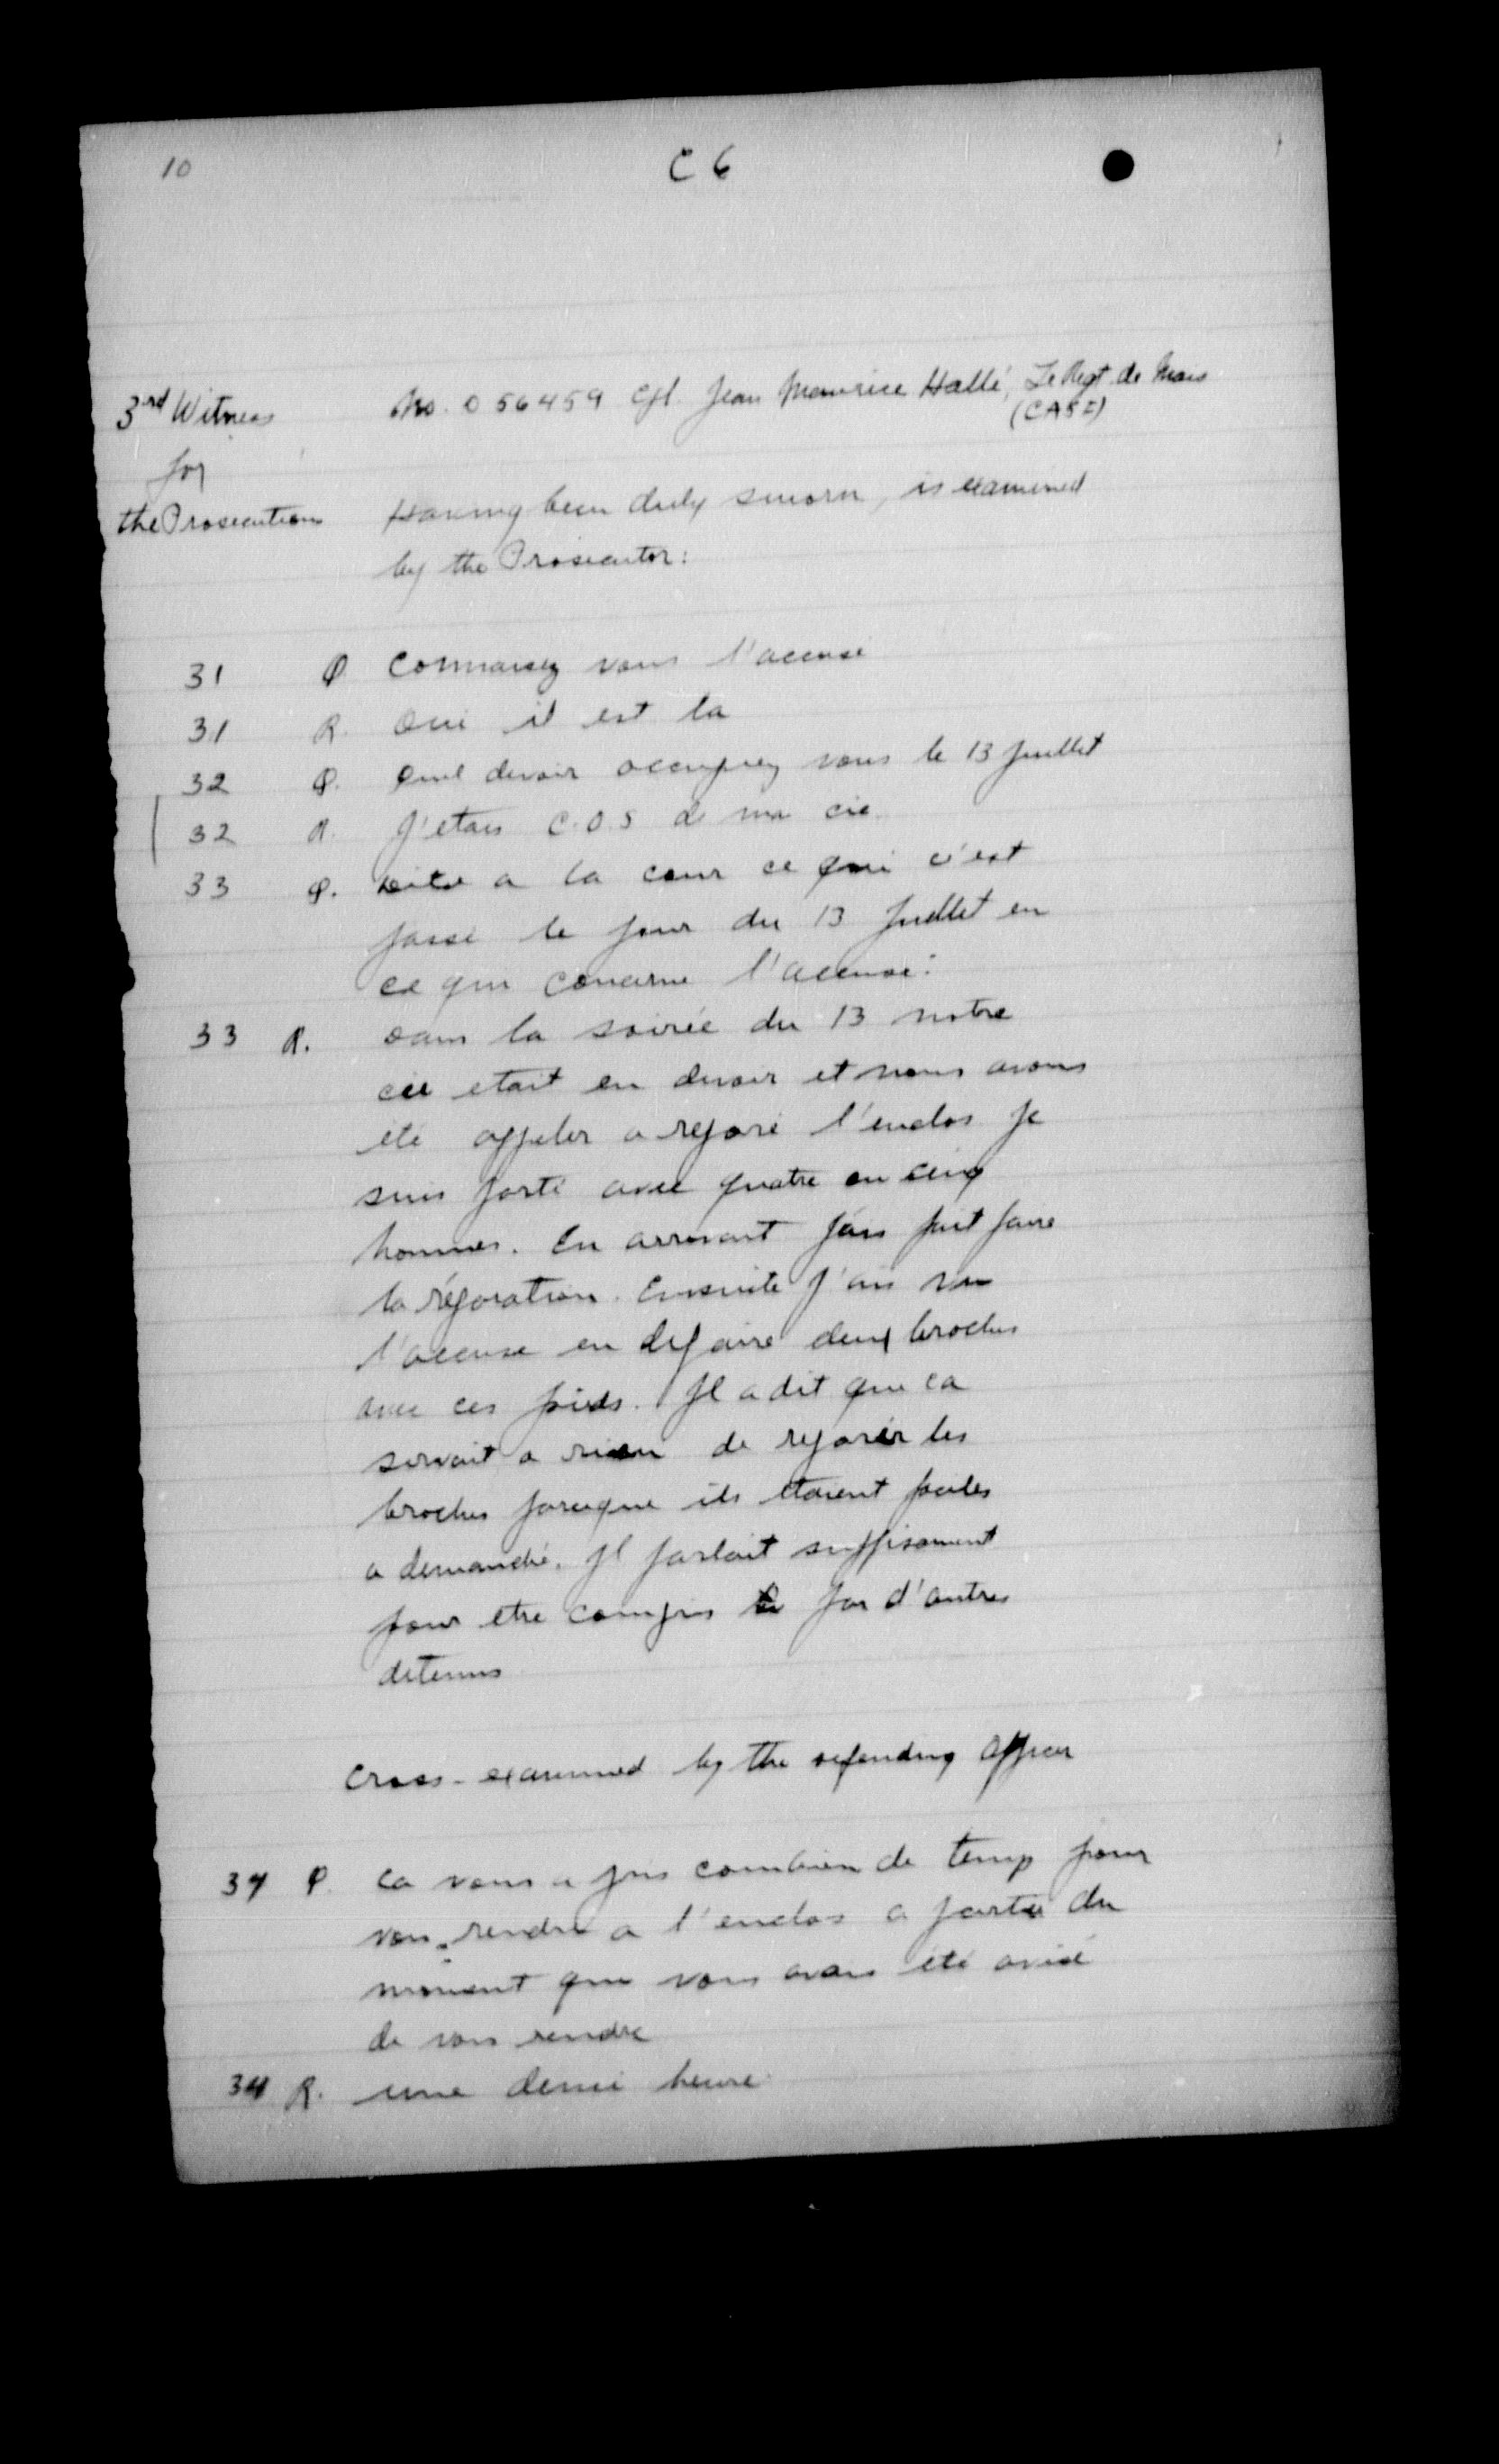 10
C 6
3rd Witness
for
the Prosecution
No. 056459 Cpl. Jean Maurice Hallé, Le Regt de Mais
(CASF)
Having been duly sworn, is examined
by the Prosecutor:
31 Q Connaisez vous l'accusé
31 R. Oui il est la
32 Q. Quel devoir occupiez vous le 13 Juillet
32 R. J'etais C.O.S de ma cie.
33 Q. Dites a la cour ce qui c'est
passé le jour du 13 Juillet en
ce qui concerne l'accusé:
33 R. Dans la soirée du 13 notre
cie etait en devoir et nous avons
eté appeler a reparé l'enclos je
suis parti avec quatre ou cinq
hommes. En arrivant j'ais fait faire
la réparation. Ensuite j'ais vu
l'accuse en defaire deux broches
avec ces pieds. Il a dit que ca
servait a rien de reparer les
broches parceque ils etaient faciles
a demanché. Il parlait suffisament
pour etre compris par d'autres
detenus
Cross-examined by the defending Officer
34 Q. Ca vous a pris combien de temp pour
vous rendre a l'enclos a partir du
moment que vous avais été avisé
de vous rendre
34 R. une demi heure